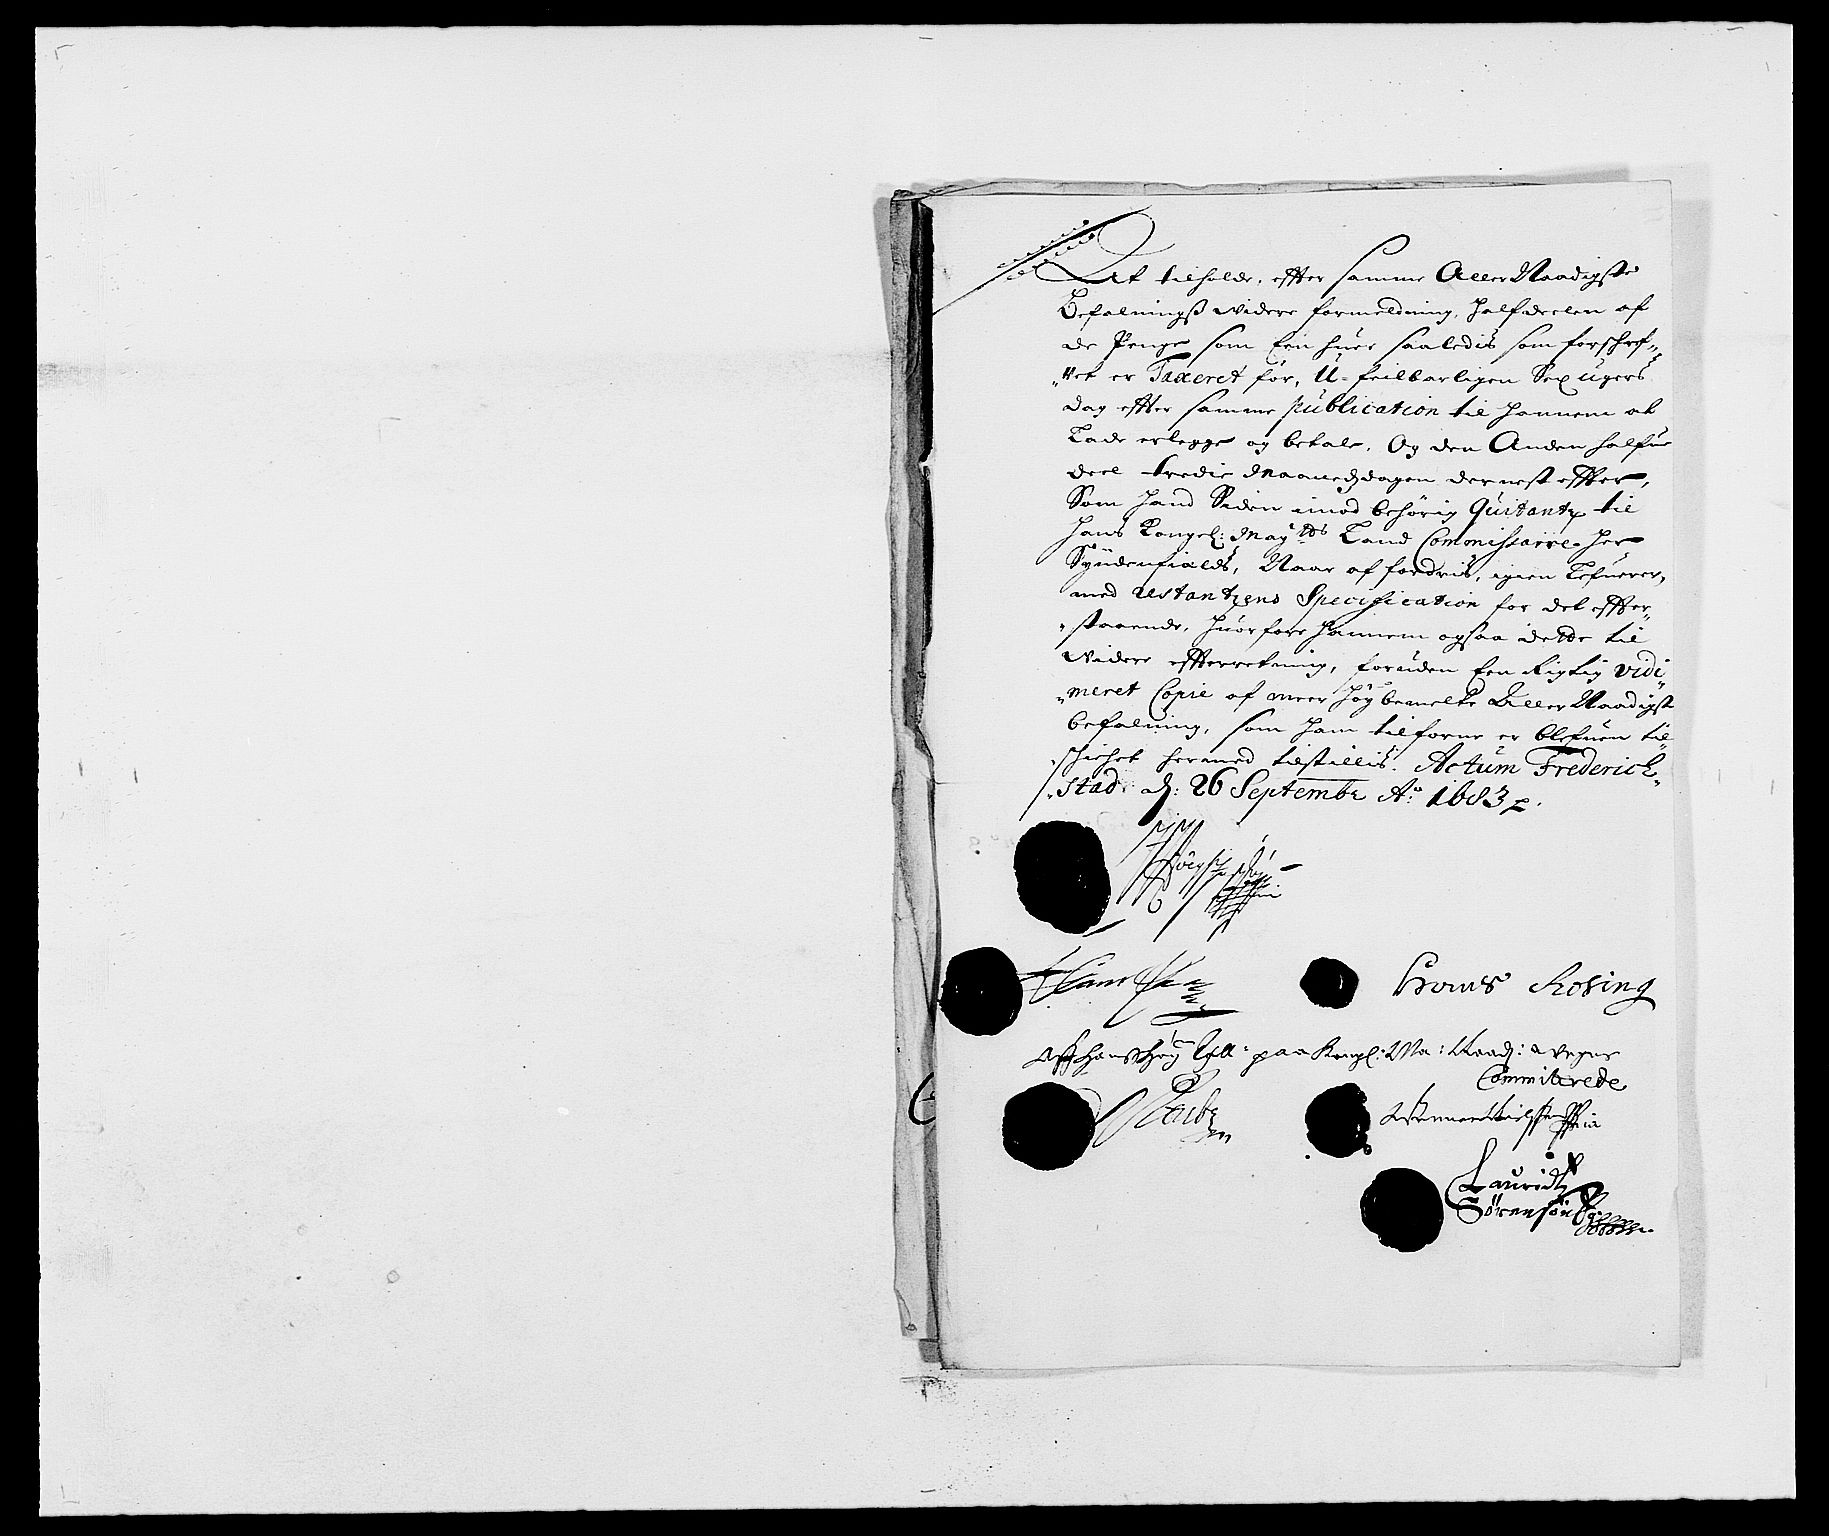 At tilholde, effter samme Aller Naadigste
Befalningß widere formeldning, halfdeelen af
de Penge som Een huer saaledis som forschref„
„vet er Taxeret for, U-feilbarligen Sex ugers
dag effter samme publication til hannem at
Lade erlegge og betale, Og den Anden halfue
deel tredie Maanedsdagen dernest effter,
Som hand Siden imod behörig Quitantz til
Hans Kongel: May:tts Land Commissarie her
Syndenfields, Naar affordris, igien Lefuerer,
med Restantzens Specification for det effter„
„staaende, huorfore hannem ogsaa dette til
widere effterretning, foruden Een Rigtig vidi„
„meret Copie af meer høybemelte Aller Naadigst
befalning, som ham tilforne er blefuen til„
„schichet hermed tilstillis. Actum Friderich„
„stad d: 26 Septembr A:o 1683
Hans
Hans Rosing
paa Kongl: Ma: Raads: wegne
Committerede
Lauridtz
Sörensön